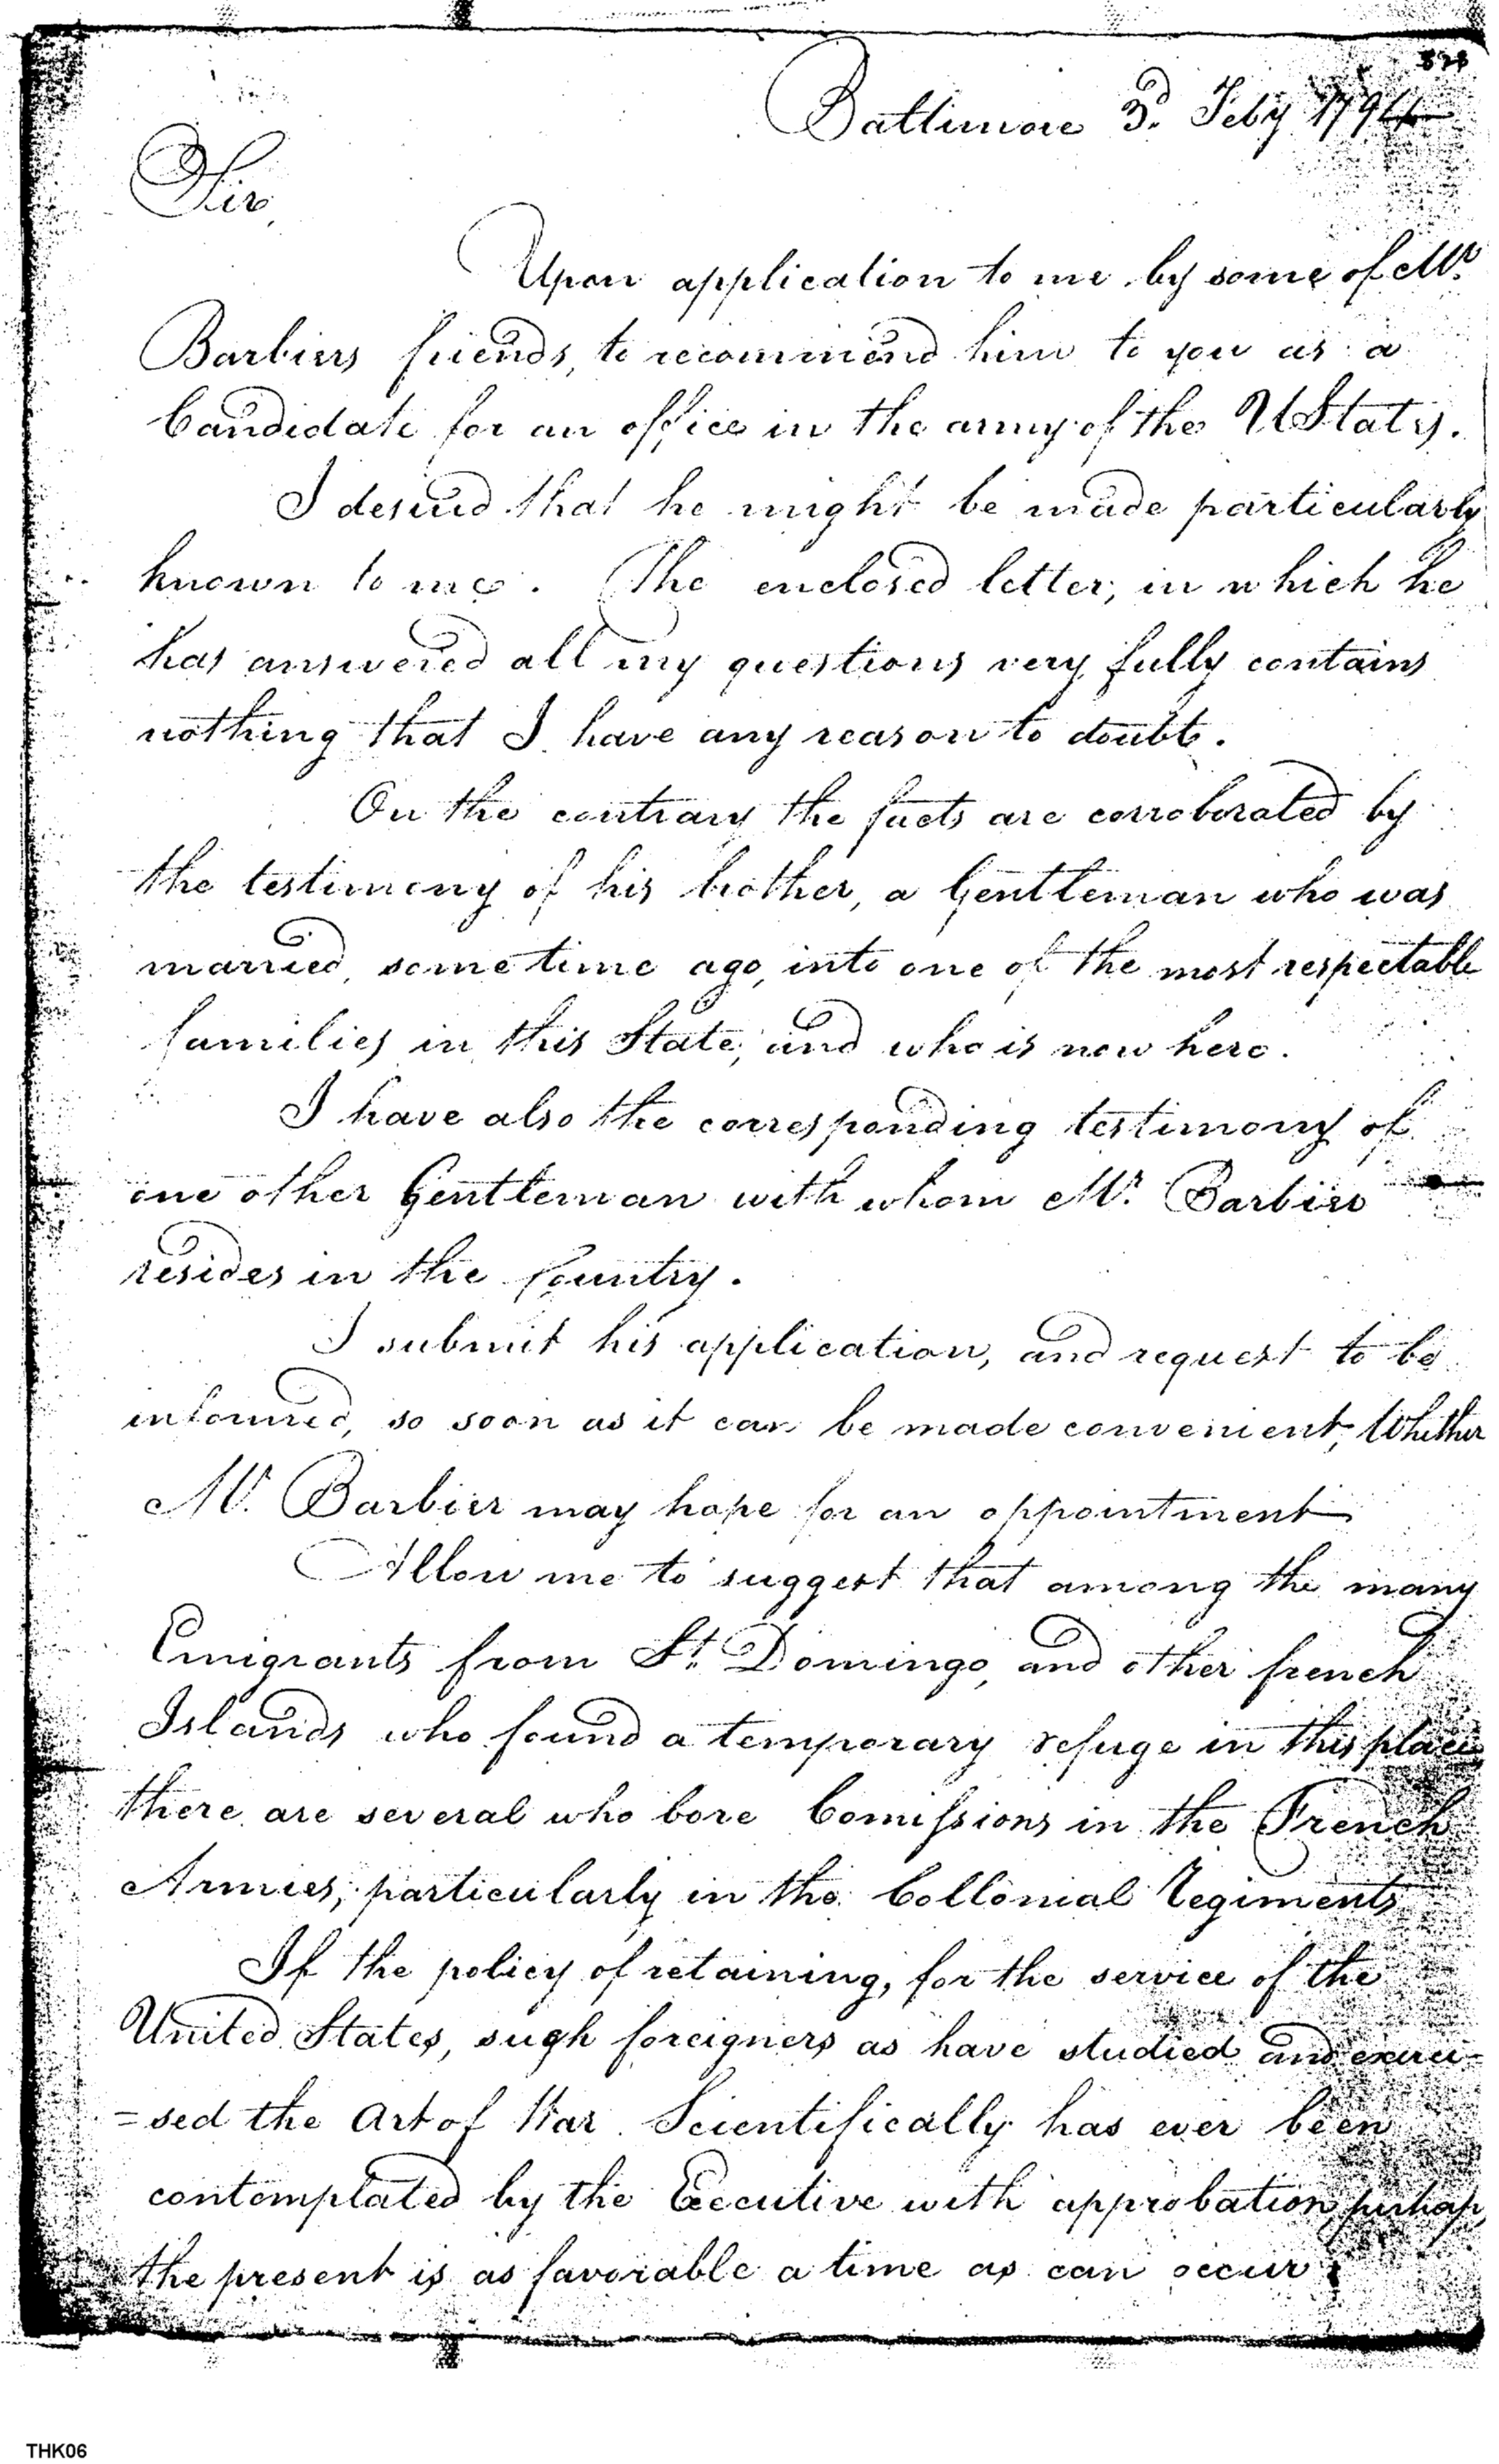 528
Baltimore 3d. Feby 1794
Sir,
Upon application to me by some of Mr.
Barbiers friends, to recommend him to you as a
Candidate for an office in the army of the UStates.
I desired that he might be made particularly
known to me. The enclosed letter, in which he
has answered all my questions very fully contains
nothing that I have any reason to doubt.
On the contrary the facts are corroborated by
the testimony of his brother, a Gentleman who was
married, some time ago, into one of the most respectable
families in this State, and who is now here.
I have also the corresponding testimony of
one other Gentleman with whom Mr. Barbier
resides in the Country.
I submit his application, and request to be
informed, so soon as it can be made convenient, Whether
Mr. Barbier may hope for an appointment
Allow me to suggest that among the many
Emigrants from St. Domingo, and other french
Islands who found a temporary refuge in this place,
there are several who bore Comissions in the French
Armies, particularly in the Collonial Regiments
If the policy of retaining, for the service of the
United States, such foreigners as have studied and exerci-
=sed the Art of War Scientifically has ever been
contemplated by the Executive with approbation, perhaps,
the present is as favorable a time as can occur.
THK06